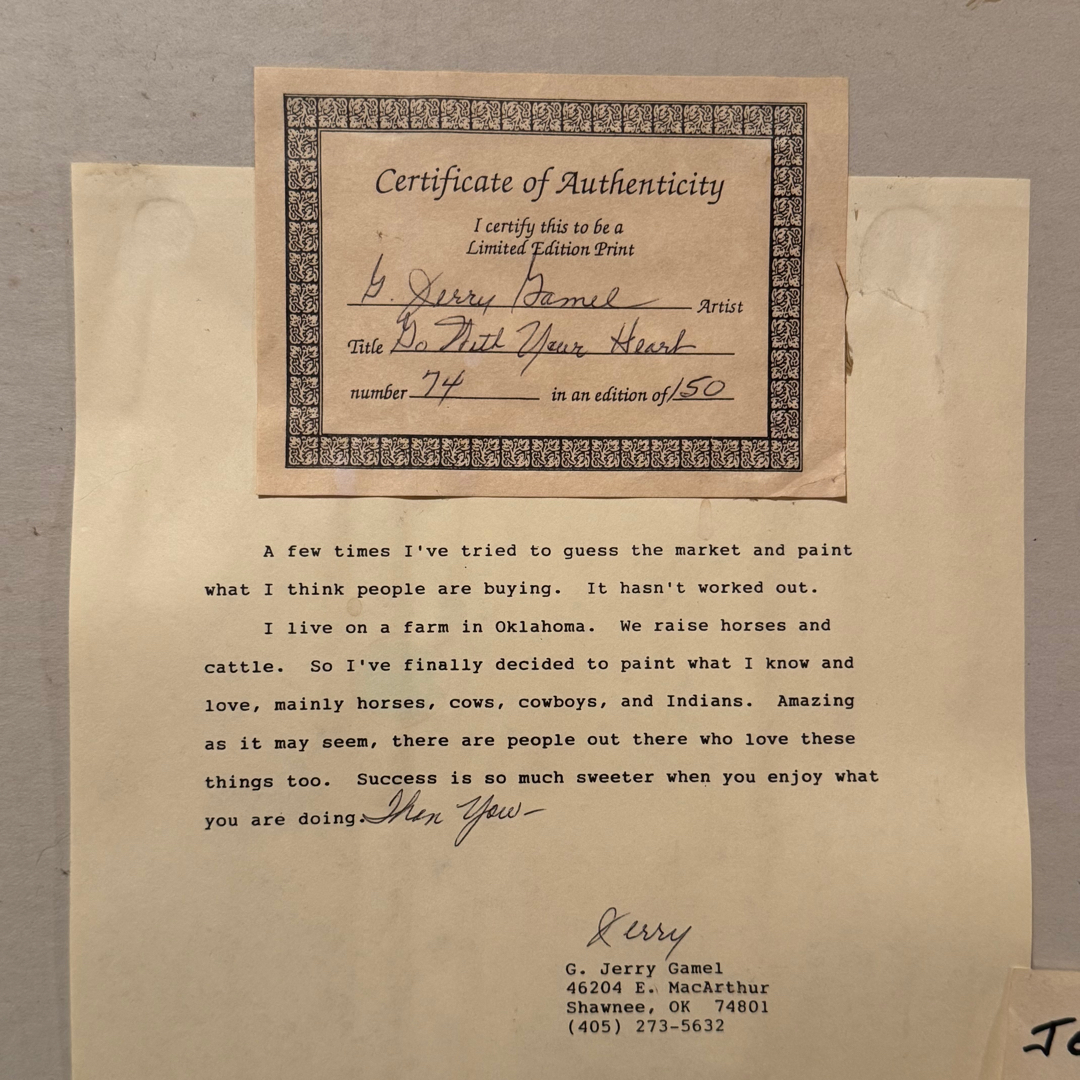 Certificate of Authenticity
I certify this to be a
Limited Edition Print
G. Jerry Gamel Artist
Title Go With Your Heart
number 74 in an edition of 150
A few times I've tried to guess the market and paint
what I think people are buying. It hasn't worked out.
I live on a farm in Oklahoma. We raise horses and
cattle. So I've finally decided to paint what I know and
love, mainly horses, cows, cowboys, and Indians. Amazing
as it may seem, there are people out there who love these
things too. Success is so much sweeter when you enjoy what
you are doing. Than You-
Jerry
G. Jerry Gamel
46204 E. MacArthur
Shawnee, OK 74801
(405) 273-5632